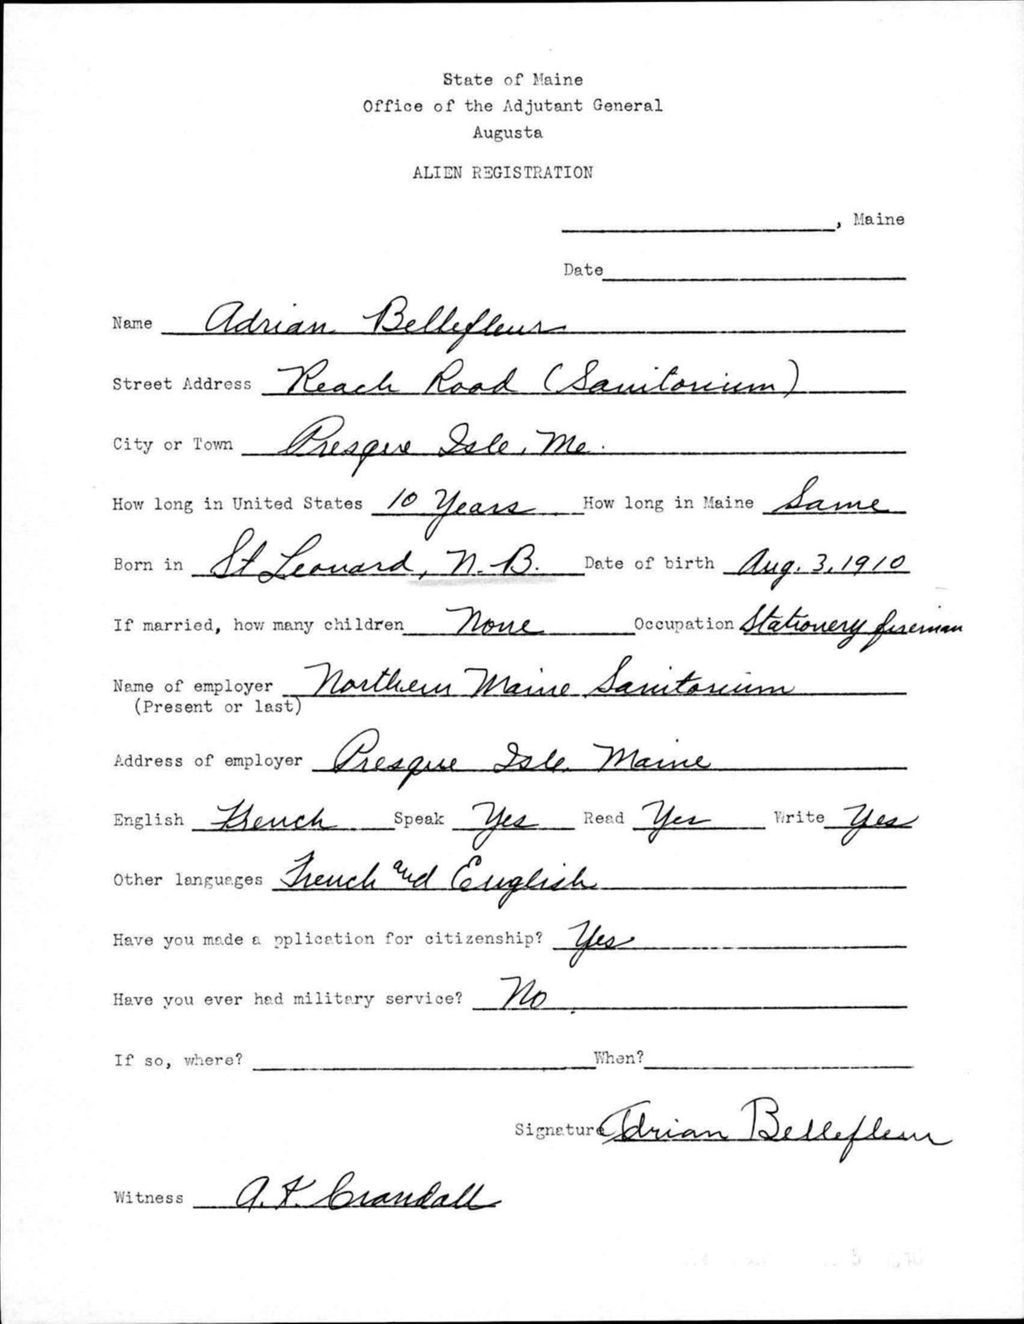 State of Maine
Office of the Adjutant General
Augusta
ALIEN REGISTRATION
, Maine
Date
Name Adrian Bellefleur
Street Address Reach Road (Sanitorium)
City or Town Presque Isle, Me.
How long in United States 10 Years How long in Maine Same
Born in St Leonard, N.B. Date of birth Aug. 3, 1910
If married, how many children None Occupation Stationery fireman
Name of employer Northern Maine Sanitorium
(Present or last)
Address of employer Presque Isle, Maine
English French Speak Yes Read Yes Write Yes
Other languages French and English
Have you made a pplication for citizenship? Yes
Have you ever had military service? No
If so, where? When?
Signature Adrian Bellefleur
Witness A. K. Crandall